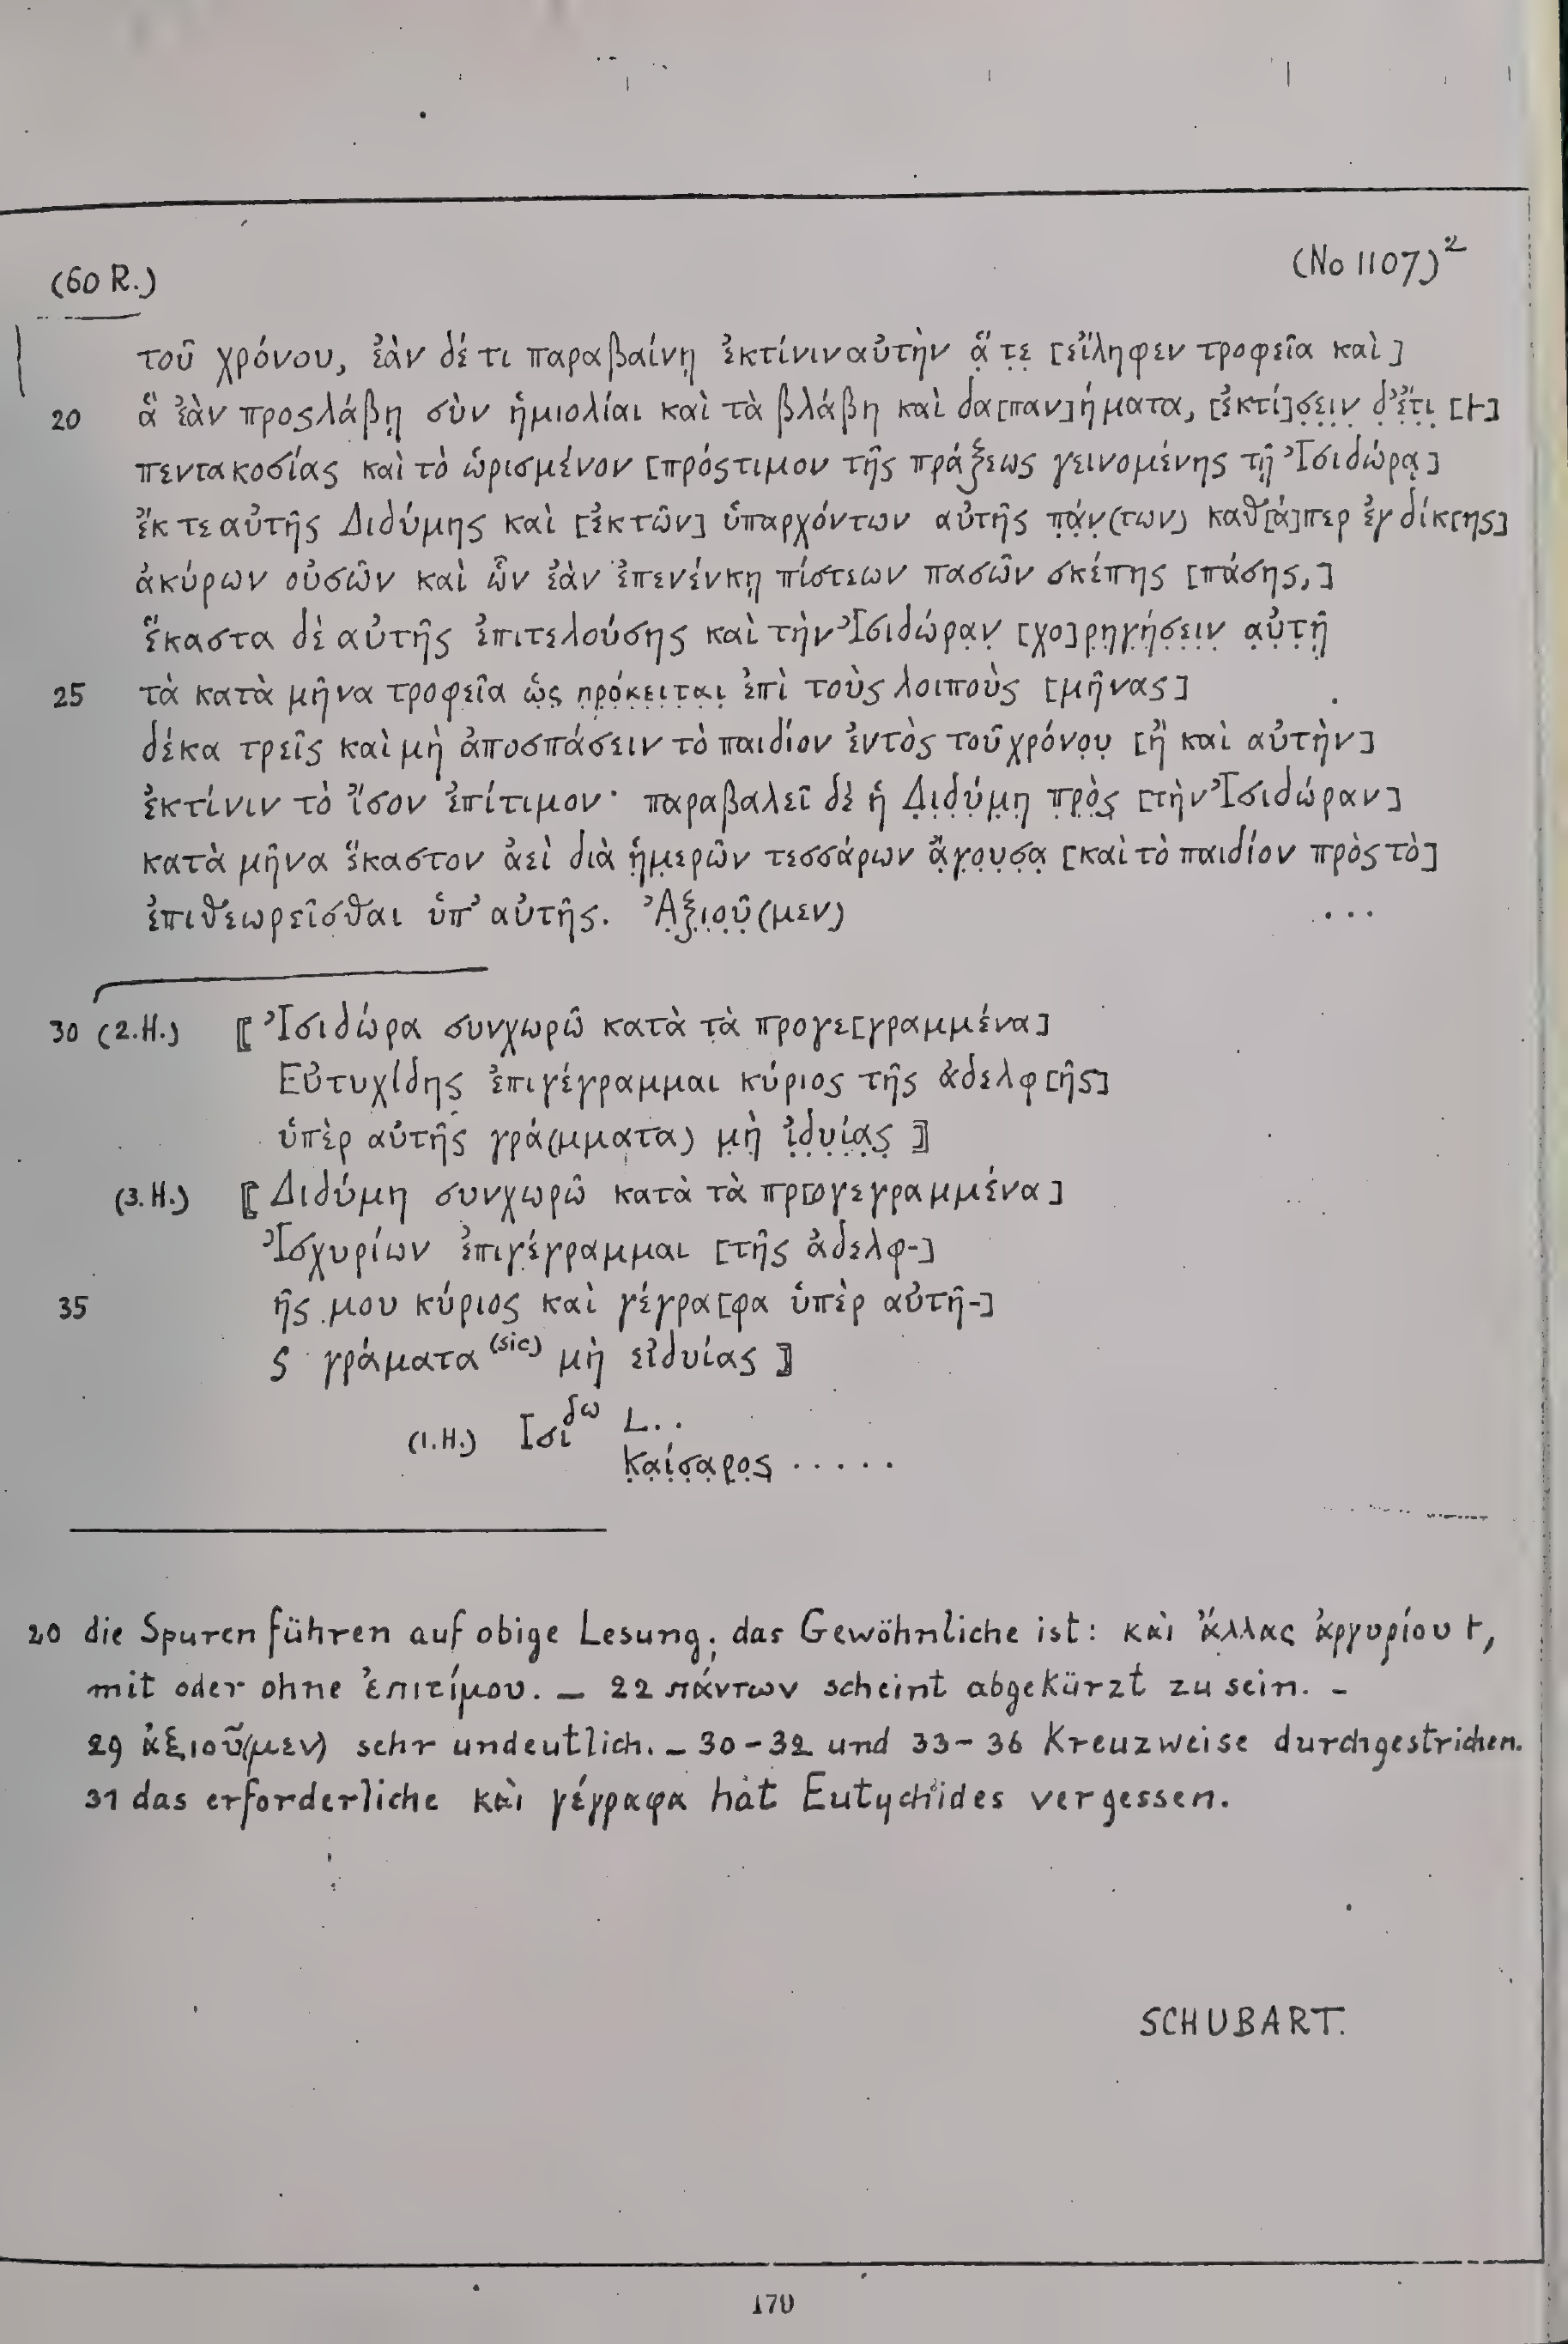 (60 R.)
(No 1107)²
τοῦ χρόνου, ἐὰν δέ τι παραβαίνῃ ἐκτίνιν αὐτὴν ἅ̣ τ̣ε̣ [εἴληφεν τροφεῖα καὶ]
20 ἃ ἐὰν προςλάβῃ σὺν ἡμιολίαι καὶ τὰ βλάβη καὶ δα[παν]ήματα, [ἐκτί]σ̣ε̣ι̣ν̣ δ̣’ἔ̣τ̣ι̣ [⊢]
πεντακοσίας καὶ τὸ ὡρισμένον [πρόστιμον τῆς πράξεως γεινομένης τῇ Ἰσιδώρᾳ]
ἔκ τε αὐτῆς Διδύμης καὶ [ἐκ τῶν] ὑπαρχόντων αὐτῆς π̣ά̣ν̣(των) καθ[ά]περ ἐγ δίκ[ης]
ἀκύρων οὐσῶν καὶ ὧν ἐὰν ἐπενένκῃ πίστεων πασῶν σκέπης [πάσης,]
ἕκαστα δὲ αὐτῆς ἐπιτελούσης καὶ τὴν Ἰσιδώρα̣ν̣ [χο]ρ̣η̣γ̣ή̣σ̣ε̣ι̣ν̣ α̣ὐ̣τ̣ῇ̣
25 τὰ κατὰ μῆνα τροφεῖα ὡ̣ς̣ π̣ρ̣ό̣κ̣ε̣ι̣τ̣α̣ι̣ ἐπὶ τοὺς λοιποὺς [μῆνας]
δέκα τρεῖς καὶ μὴ ἀποσπάσειν τὸ παιδίον ἐντὸς τοῦ χρόνο̣υ̣ [ἢ καὶ αὐτὴν]
ἐκτίνιν τὸ ἴσον ἐπίτιμον· παραβαλεῖ δὲ ἡ Δ̣ι̣δ̣ύ̣μ̣η̣ π̣ρ̣ὸ̣ς̣ [τὴν Ἰσιδώραν]
κατὰ μῆνα ἕκαστον ἀεὶ διὰ ἡ̣μ̣ερῶν τεσσάρων ἄ̣γ̣ο̣υ̣σ̣α̣ [καὶ τὸ παιδίον πρὸς τὸ]
ἐπιθεωρεῖσθαι ὑπ’ αὐτῆς. Ἀ̣ξ̣ι̣ο̣ῦ̣(μεν) ...
30 (2.H.) ⟦ Ἰσιδώρα συνχωρῶ κατὰ τὰ προγε[γραμμένα]
Εὐτυχίδης ἐπιγέγραμμαι κύριος τῆς ἀδελφ[ῆς]
ὑπὲρ αὐτῆς γρά(μματα) μ̣ὴ̣ ἰ̣δ̣υ̣ί̣α̣ς̣ ⟧
(3.H.) ⟦ Διδύμη συνχωρῶ κατὰ τὰ πρ[ογεγραμμένα]
Ἰσχυρίων ἐπιγέγραμμαι [τῆς ἀδελφ-]
35 ῆς μου κύριος καὶ γέγρα[φα ὑπὲρ αὐτῆ-]
ς γράματα (sic) μὴ εἰδυίας ⟧
(1.H.) Ισιδω L..
κ̣α̣ί̣σ̣α̣ρ̣ο̣ς̣ .....
20 die Spuren führen auf obige Lesung; das Gewöhnliche ist: καὶ ἄλλας ἀργυρίου ⊢,
mit oder ohne ἐπιτίμου. – 22 πάντων scheint abgekürzt zu sein. –
29 ἀξιοῦ(μεν) sehr undeutlich. – 30–32 und 33–36 Kreuzweise durchgestrichen.
31 das erforderliche καὶ γέγραφα hat Eutychides vergessen.
SCHUBART.
170